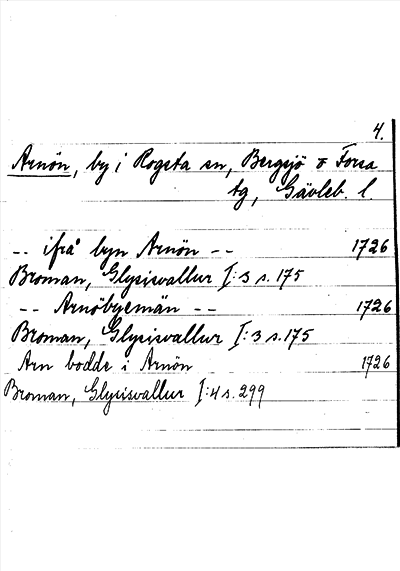 4.
Arnön, by i Rogsta sn, Bergsjö o Forsa
tg, Gävleb. l.
-- ifrå byn Arnön -- 1726
Broman, Glysisvallur I:3 s. 175
-- Arnöbyemän -- 1726
Broman, Glysisvallur I:3 s. 175
Arn bodde i Arnön 1726
Broman, Glysisvallur I:4 s. 299